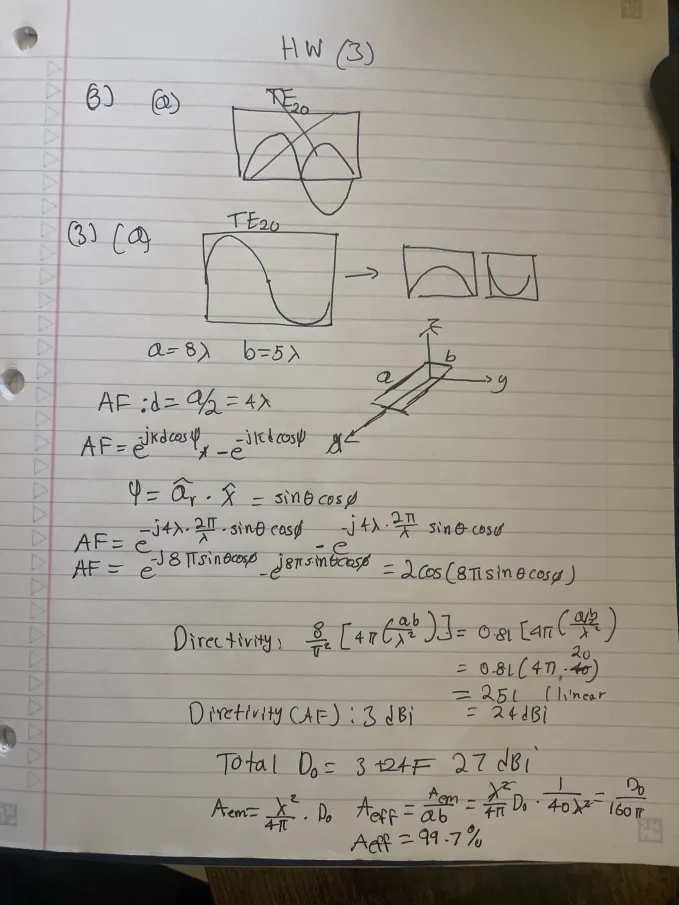 HW (3)
(3) (a)
TE₂₀
(3) (a)
TE₂₀
a=8λ b=5λ
z
a b
y
AF : d = a/2 = 4λ
AF = e^{-jkdcosψ} - e^{-jkdcosψ}
ψ = â_r · x̂ = sinθ cosφ
AF = e^{-j4λ·2π/λ·sinθ cosφ} - e^{-j4λ·2π/λ sinθ cosφ}
AF = e^{-j8πsinθcosφ} - e^{j8πsinθcosφ} = 2cos(8πsinθcosφ)
Directivity: 8/π² [4π(ab/λ²)] = 0.81 [4π(a/2b/λ²)
= 0.81(4π·20)
= 251 (linear
Diretivity (AF) : 3 dBi = 24dBi
Total D₀ = 3+24= 27 dBi
Aem = λ²/4π · D₀ Aeff = Aem/ab = λ²/4π D₀ · 1/40λ² = D₀/160π
Aeff = 99.7%